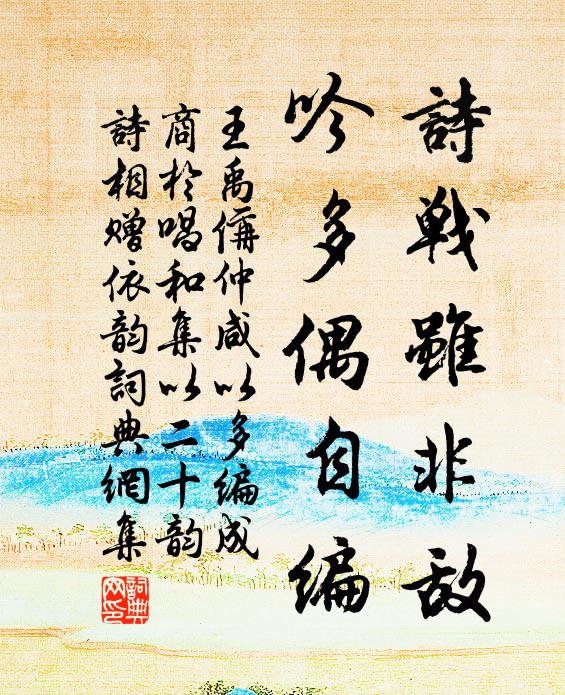 詩戰雖非敵
吟多偶自編
王禹偁仲咸以多編成
商於唱和集以二十韵
詩相贈依韵詞典網集
詞典网印